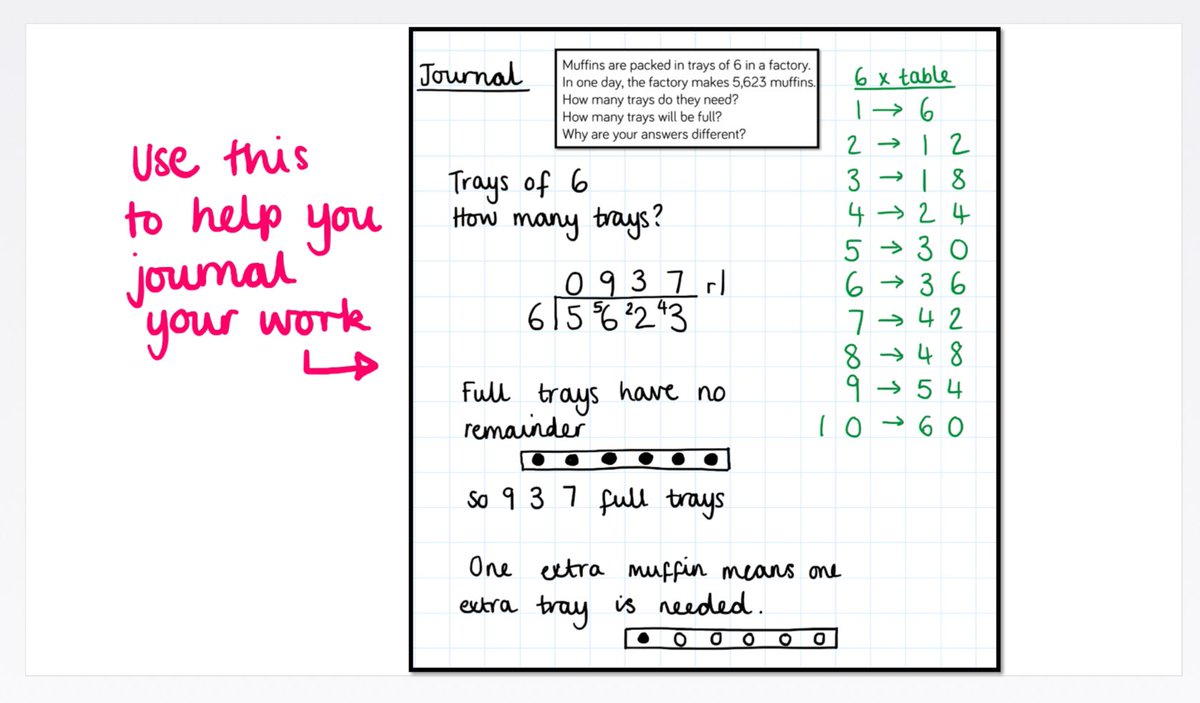 Use this
to help you
journal
your work
Journal
Muffins are packed in trays of 6 in a factory.
In one day, the factory makes 5,623 muffins.
How many trays do they need?
How many trays will be full?
Why are your answers different?
Trays of 6
How many trays?
0 9 3 7 r1
6 5 ⁵6 ²2 ⁴3
Full trays have no
remainder
So 9 3 7 full trays
One extra muffin means one
extra tray is needed.
6 x table
1 → 6
2 → 1 2
3 → 1 8
4 → 2 4
5 → 3 0
6 → 3 6
7 → 4 2
8 → 4 8
9 → 5 4
1 0 → 6 0